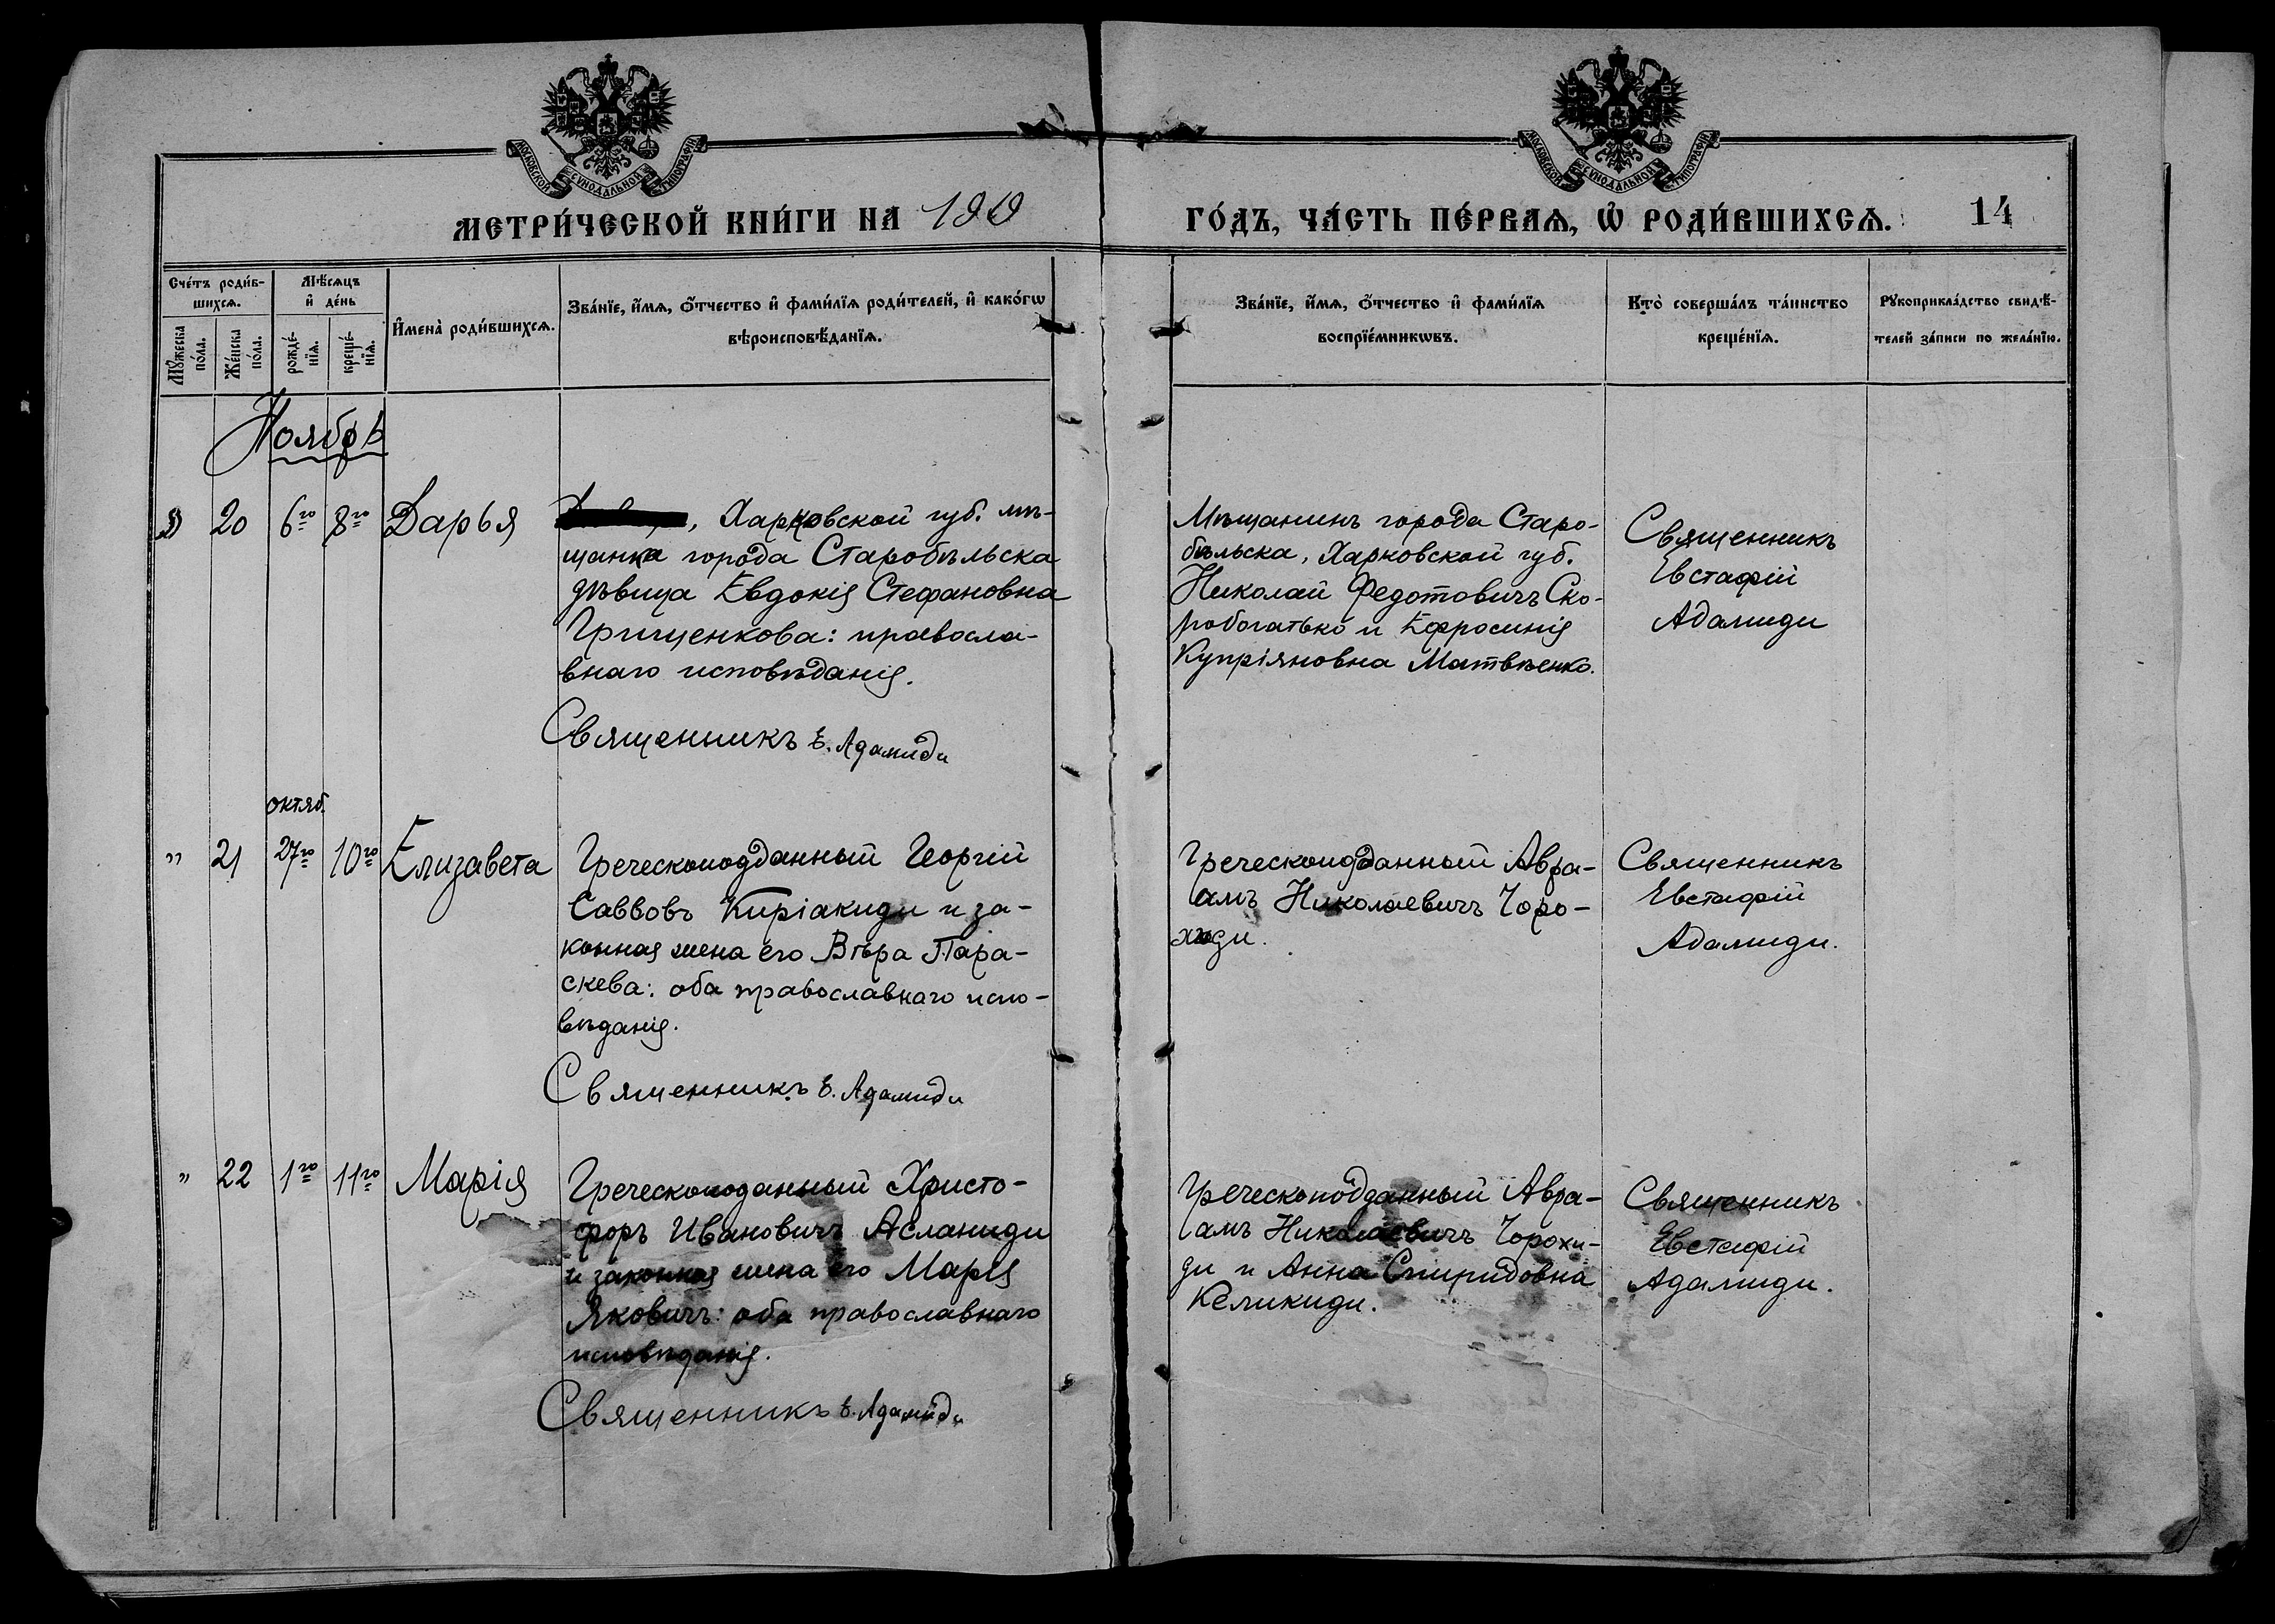 МОСКОВСКОЙ СѴНОДАЛЬНОЙ ТИПОГРАФІИ
МОСКОВСКОЙ СѴНОДАЛЬНОЙ ТИПОГРАФІИ
МЕТРИ́ЧЕСКОЙ КНИ́ГИ НА
ГО́ДЪ, ЧА́СТЬ ПЕ́РВАѦ, Ѡ҆ РОДИ́ВШИХСѦ.
14
Сче́тъ роди́в-
шихсѧ.
Мѣ́сѧцъ
и҆ де́нь
Мꙋ́жеска по́ла.
Же́нска по́ла.
рожде́-нїѧ.
креще́-нїѧ.
И҆мена̀ роди́вшихсѧ.
Зва́нїе, и҆́мѧ, ѻ҆́тчество и҆ фами́лїѧ роди́телей, и҆ како́гѡ
вѣроисповѣ́данїѧ.
Зва́нїе, и҆́мѧ, ѻ҆́тчество и҆ фами́лїѧ
воспрїе́мникѡвъ.
Кто̀ соверша́лъ та́инство
креще́нїѧ.
Рꙋкоприкла́дство свидѣ́-
телей за́писи по жела́нїю.
Ноябрь
20 6го 8го Дарья
, Харьковской губ. мѣ-
щанка города Старобѣльска
дѣвица Евдокія Стефановна
Грищенкова: правосла-
внаго исповѣданія.
Священникъ Е. Адамиди
Мѣщанинъ города Старо-
бѣльска, Харковской губ.
Николай Федотовичъ Ско-
робогатько и Ефросинія
Купріяновна Матвѣенко.
Священникъ
Евстафій
Адамиди
октяб.
" 21 27го 10го Елизавета
Греческоподданный Георгій
Саввовъ Киріакиди и за-
конная жена его Вѣра Пара-
скева: оба православнаго испо-
вѣданія.
Священникъ Е. Адамиди
Греческоподданный Авра-
амъ Николаевичъ Чоро-
хиди.
Священникъ
Евстафій
Адамиди.
" 22 1го 11го Марія
Греческоподанный Христо-
форъ Ивановичъ Асланиди
и законная жена его Марія
Яковичъ: оба православнаго
исповѣданія.
Священникъ Е. Адамиди
Греческоподданный Авра-
амъ Николаевичъ Чорохи-
ди и Анна Спиридовна
Келикиди.
Священникъ
Евстафій
Адамиди.